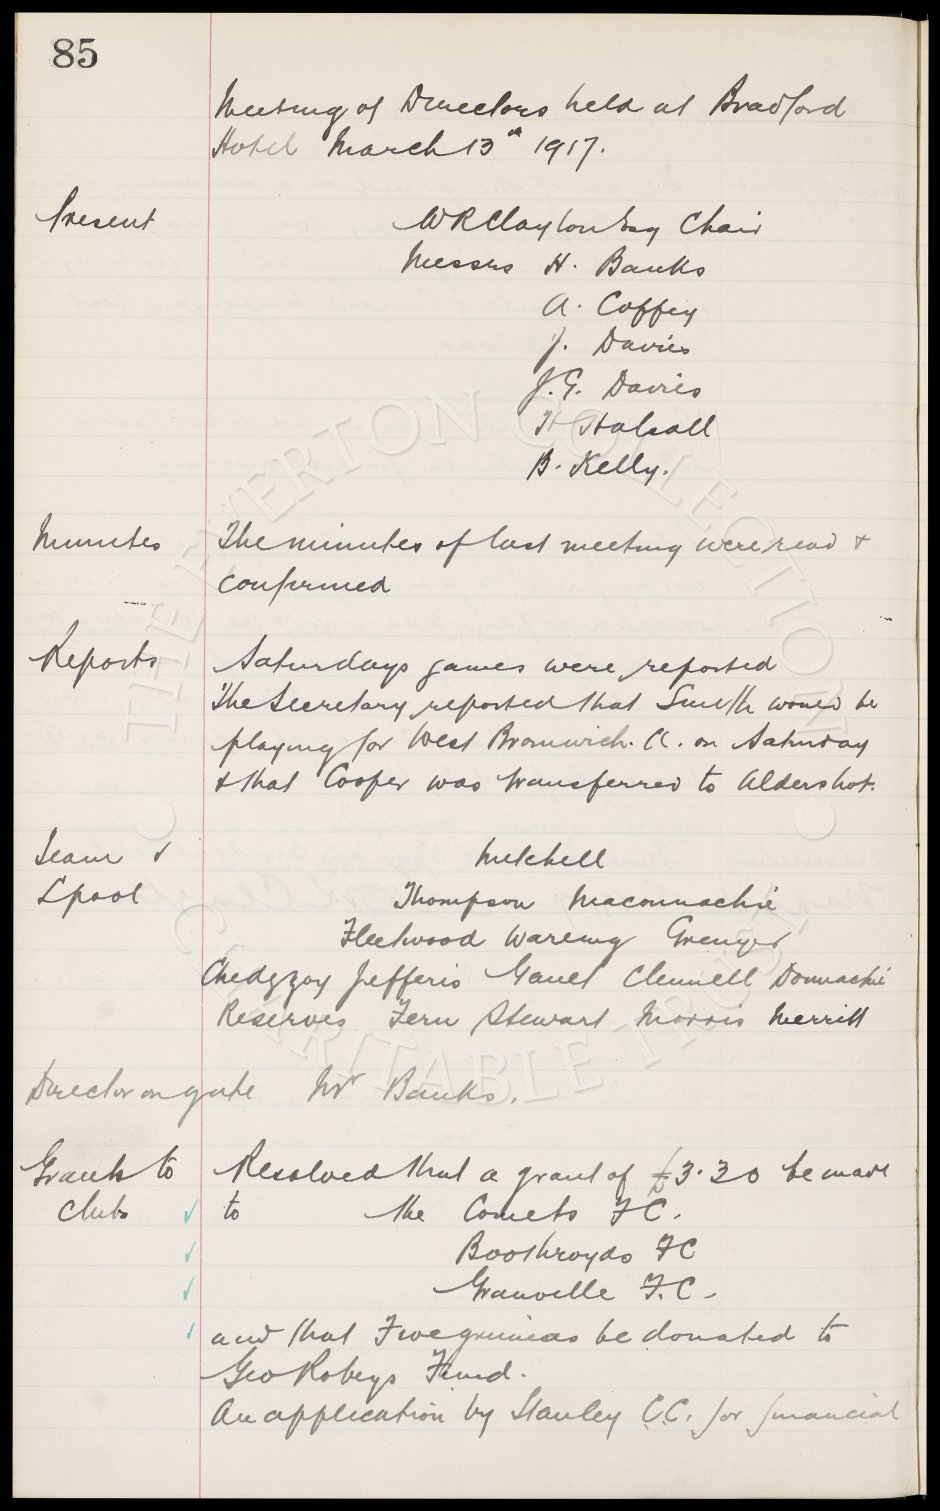 85
Meeting of Directors held at Bradford
Hotel March 13th 1917.
Present W R Clayton Esq Chair
Messrs H. Banks
A. Coffey
J. Davies
J. G. Davies
H Halsall
B. Kelly.
Minutes The minutes of last meeting were read +
confirmed
Reports Saturdays games were reported
The Secretary reported that Smith would be
playing for West Bromwich. A. on Saturday
+ that Cooper was transferred to Aldershot.
Team v Mitchell
Lpool Thompson Maconnachie
Fleetwood Wareing Grenyer
Chedgzoy Jefferis Gault Clennell Donnachie
Reserves Fern Stewart Morris Merritt
Director on gate Mr Banks.
Grants to Resolved that a grant of £3.3.0 be made
clubs to the Comets F C.
Boothroyds F C
Granville F. C.
and that Five guineas be donated to
Geo Robeys Fund.
An application by Stanley C.C. for financial
THE EVERTON COLLECTION
CHARITABLE TRUST